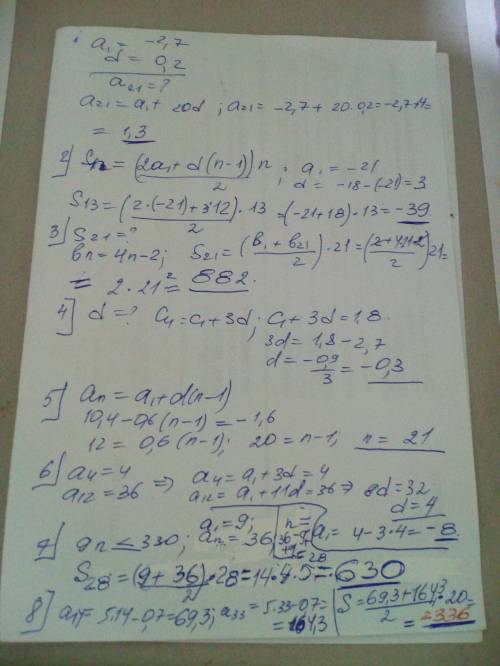 a₁ = -2,7
d = 0,2
a₂₁ = ?
a₂₁ = a₁ + 20d ; a₂₁ = -2,7 + 20·0,2 = -2,7+4=
= 1,3
2] S₁₂ = (2a₁ + d(n-1))n / 2 ; a₁ = -21
d = -18-(-21) = 3
S₁₃ = (2·(-21)+3·12)/2 · 13 = (-21+18)·13 = -39
3] S₂₁ = ?
bn = 4n-2; S₂₁ = (b₁ + b₂₁ / 2)·21 = (2+4·21-2 / 2)21=
= 2·21² = 882.
4] d = ? C₄ = C₁ + 3d ; C₁ + 3d = 1,8
3d = 1,8 - 2,7
d = -0,9/3 = -0,3
5] an = a₁ + d(n-1)
10,4 - 0,6(n-1) = -1,6
12 = 0,6(n-1); 20 = n-1, n = 21
6] a₄ = 4 => a₄ = a₁ + 3d = 4
a₁₂ = 36 a₁₂ = a₁ + 11d = 36 => 8d = 32
d = 4
a₁ = 4 - 3·4 = -8.
7] 9n ≤ 330; a₁ = 9; an = 36 n = 36-9+1=28
S₂₈ = (9+36)/2 · 28 = 14·45 = 630
8] a₁₄ = 5·14 - 0,7 = 69,3; a₃₃ = 5·33 - 0,7 = S = 69,3+164,3 / 2 · 20=
= 164,3 = 2336